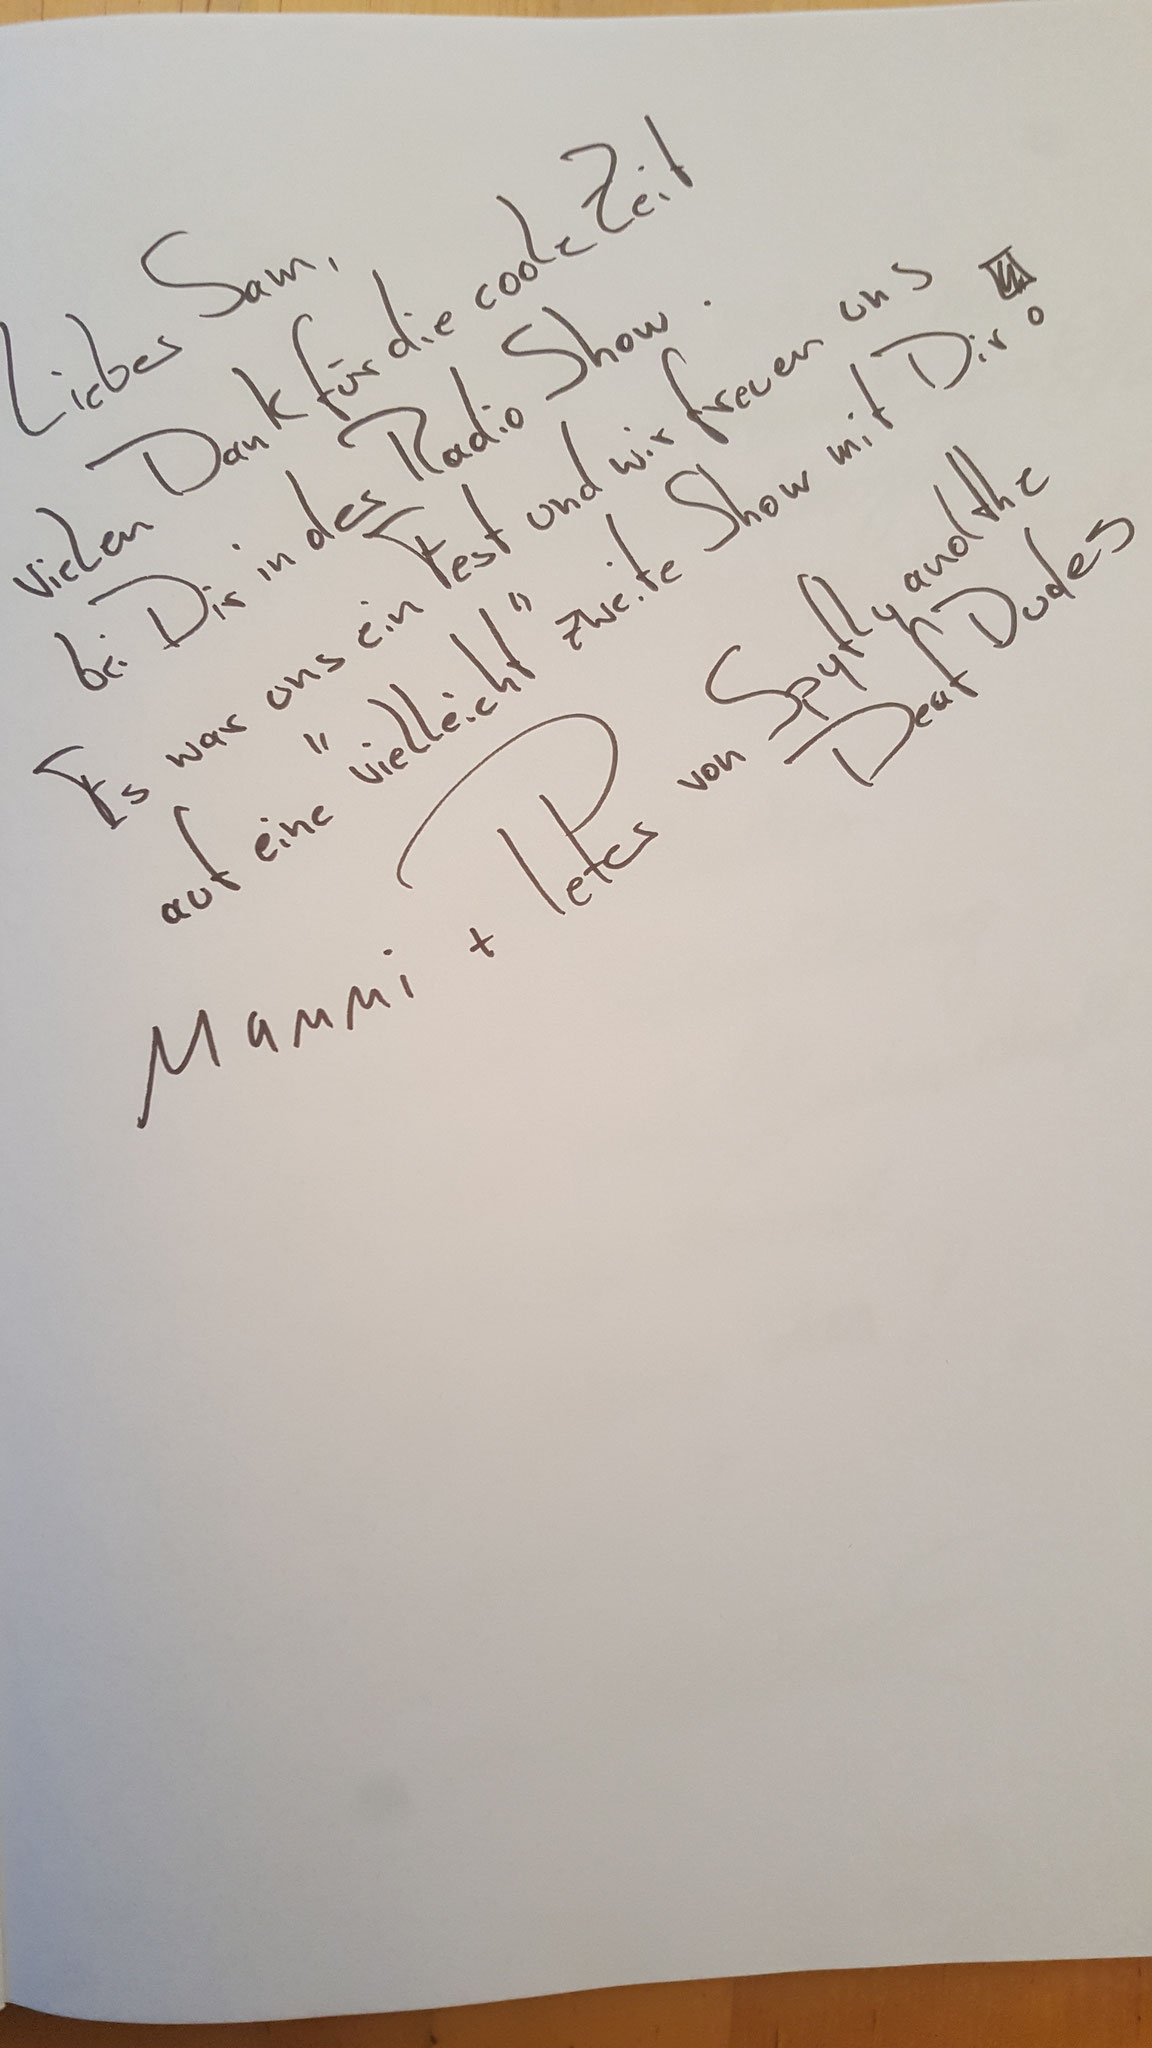 Lieber Sam,
vielen Dank für die coole Zeit
bei Dir in der Radio Show.
Es war uns ein Fest und wir freuen uns
auf eine "vielleicht" zweite Show mit Dir!
Mammi + Peter von Spyfly and the
Deaf Dudes